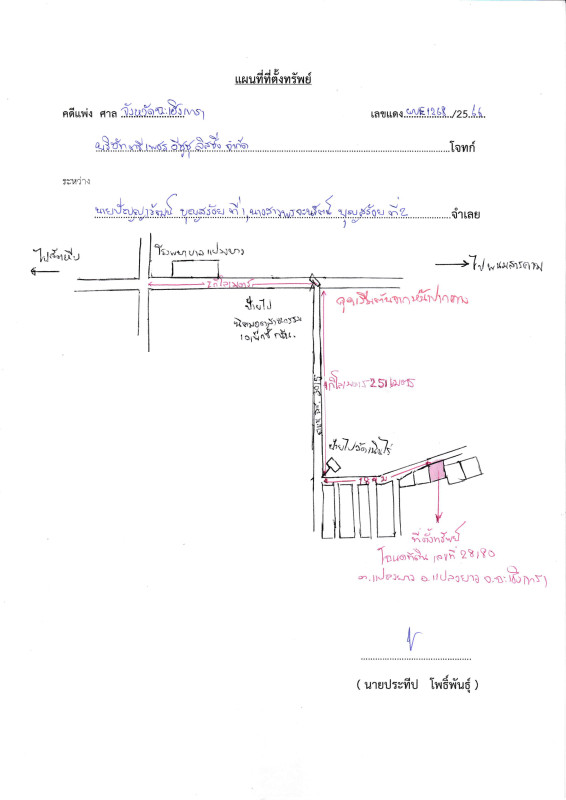 แผนที่ที่ตั้งทรัพย์
คดีแพ่ง ศาล จังหวัดฉะเชิงเทรา เลขแดง ผบE1268 /25 66
บริษัท ตรีเพชรอีซูซุลิสซิ่ง จำกัด โจทก์
ระหว่าง
บุญสร้อย ที่ 1, นางสาว บุญสร้อย ที่ 2 จำเลย
ไปสัตหีบ
โรงพยาบาลแปลงยาว
ไปพนมสารคาม
ป้ายไป
นิคมอุตสาหกรรม
251 เมตร
ป้ายไปวัดเนินไร่
ที่ตั้งทรัพย์
โฉนดที่ดิน เลขที่ 28190
ต.แปลงยาว อ.แปลงยาว จ.ฉะเชิงเทรา
( นายประทีป โพธิ์พันธุ์ )